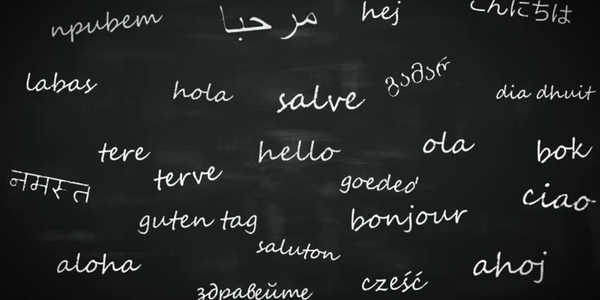 привет
مرحبا
hej
こんにちは
labas
hola
salve
dia dhuit
tere
hello
ola
bok
नमस्त
terve
goeded
ciao
guten tag
bonjour
saluton
aloha
ahoj
cześć
здравейте